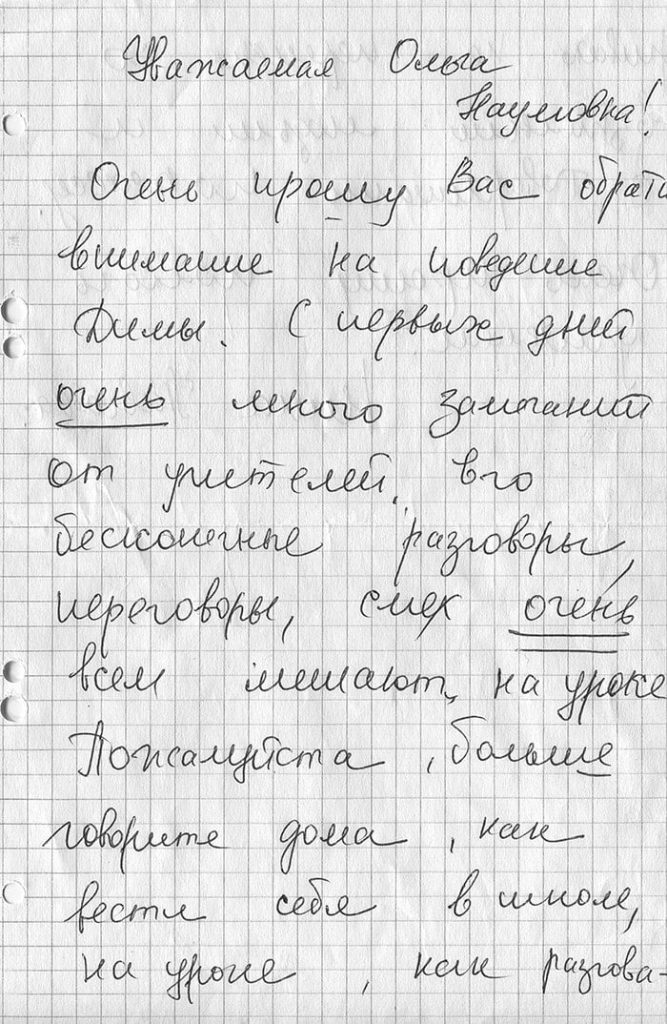 Уважаемая Ольга
Наумовна!
Очень прошу Вас обрати
внимание на поведение
Димы. С первых дней
очень много замечаний
от учителей. Его
бесконечные разговоры,
переговоры, смех очень
всем мешают, на уроке
Пожалуйста, больше
говорите дома, как
вести себя в школе,
на уроке, как разгова-